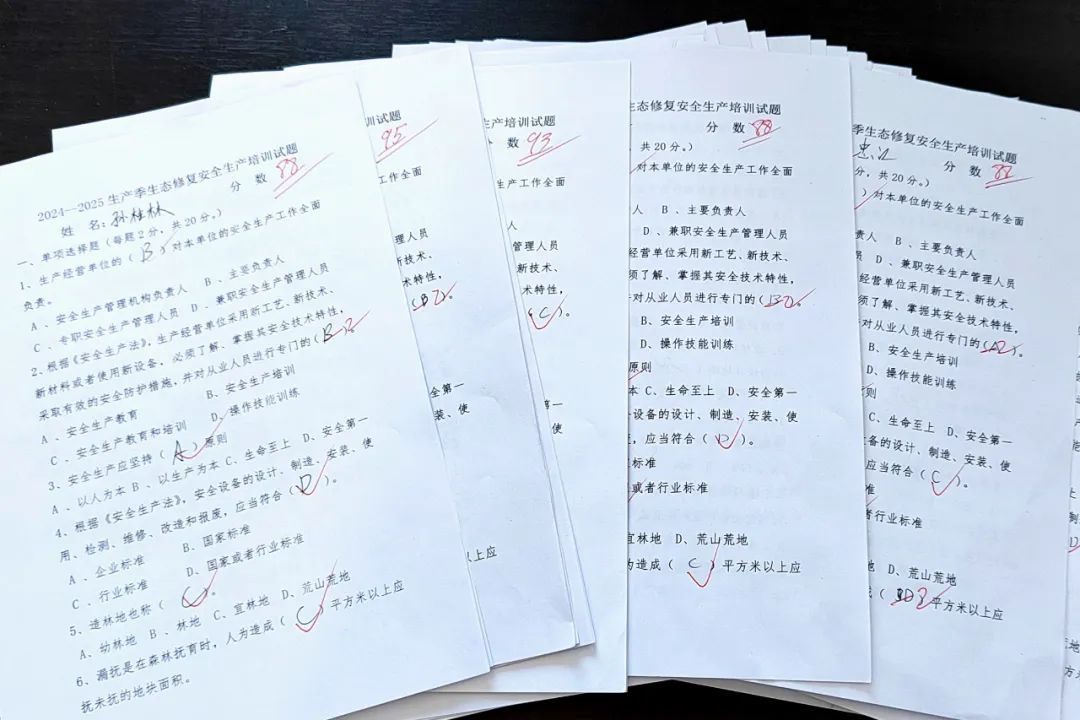 2024—2025 生产季生态修复安全生产培训试题
姓 名:孙桂林 分 数 88
一、单项选择题（每题2分，共20分。）
1、生产经营单位的（ B ）对本单位的安全生产工作全面
负责。
A 、安全生产管理机构负责人 B 、主要负责人
C 、专职安全生产管理人员 D 、兼职安全生产管理人员
2、根据《安全生产法》，生产经营单位采用新工艺、新技术、
新材料或者使用新设备，必须了解、掌握其安全技术特性，
采取有效的安全防护措施，并对从业人员进行专门的（B
A 、安全生产教育 B、安全生产培训
C 、安全生产教育和培训 D、操作技能训练
3、安全生产应坚持（ A ）原则
A 、以人为本 B 、以生产为本 C、生命至上 D、安全第一
4、根据《安全生产法》，安全设备的设计、制造、安装、使
用、检测、维修、改造和报废，应当符合（ D ）。
A 、企业标准 B、国家标准
C 、行业标准 D、国家或者行业标准
5、造林地也称（ C ）。
A、幼林地 B 、林地 C、宜林地 D、荒山荒地
6、漏抚是在森林抚育时，人为造成（ C ）平方米以上应
抚未抚的地块面积。
训试题
95
工作全面
理人员
新技术、
术特性，
（B2）。
全第一
装、使
以上应
生产培训试题
数 93
生产工作全面
人
管理人员
新技术、
术特性，
（ C ）。
第一
使
生态修复安全生产培训试题
分 数 88
，共20分。）
对本单位的安全生产工作全面
人 B 、主要负责人
D 、兼职安全生产管理人员
经营单位采用新工艺、新技术、
须了解、掌握其安全技术特性，
并对从业人员进行专门的（
B、安全生产培训
D、操作技能训练
原则
本 C、生命至上 D、安全第一
设备的设计、制造、安装、使
，应当符合（ D ）。
标准
或者行业标准
宜林地 D、荒山荒地
为造成（ C ）平方米以上应
季生态修复安全生产培训试题
分 数 88
分，共20分。）
）对本单位的安全生产工作全面
责人 B 、主要负责人
D 、兼职安全生产管理人员
经营单位采用新工艺、新技术、
须了解、掌握其安全技术特性，
对从业人员进行专门的（A2）。
B、安全生产培训
D、操作技能训练
则
C、生命至上 D、安全第一
备的设计、制造、安装、使
应当符合（ C ）。
准
者行业标准
地 D、荒山荒地
成（ 2 平方米以上应